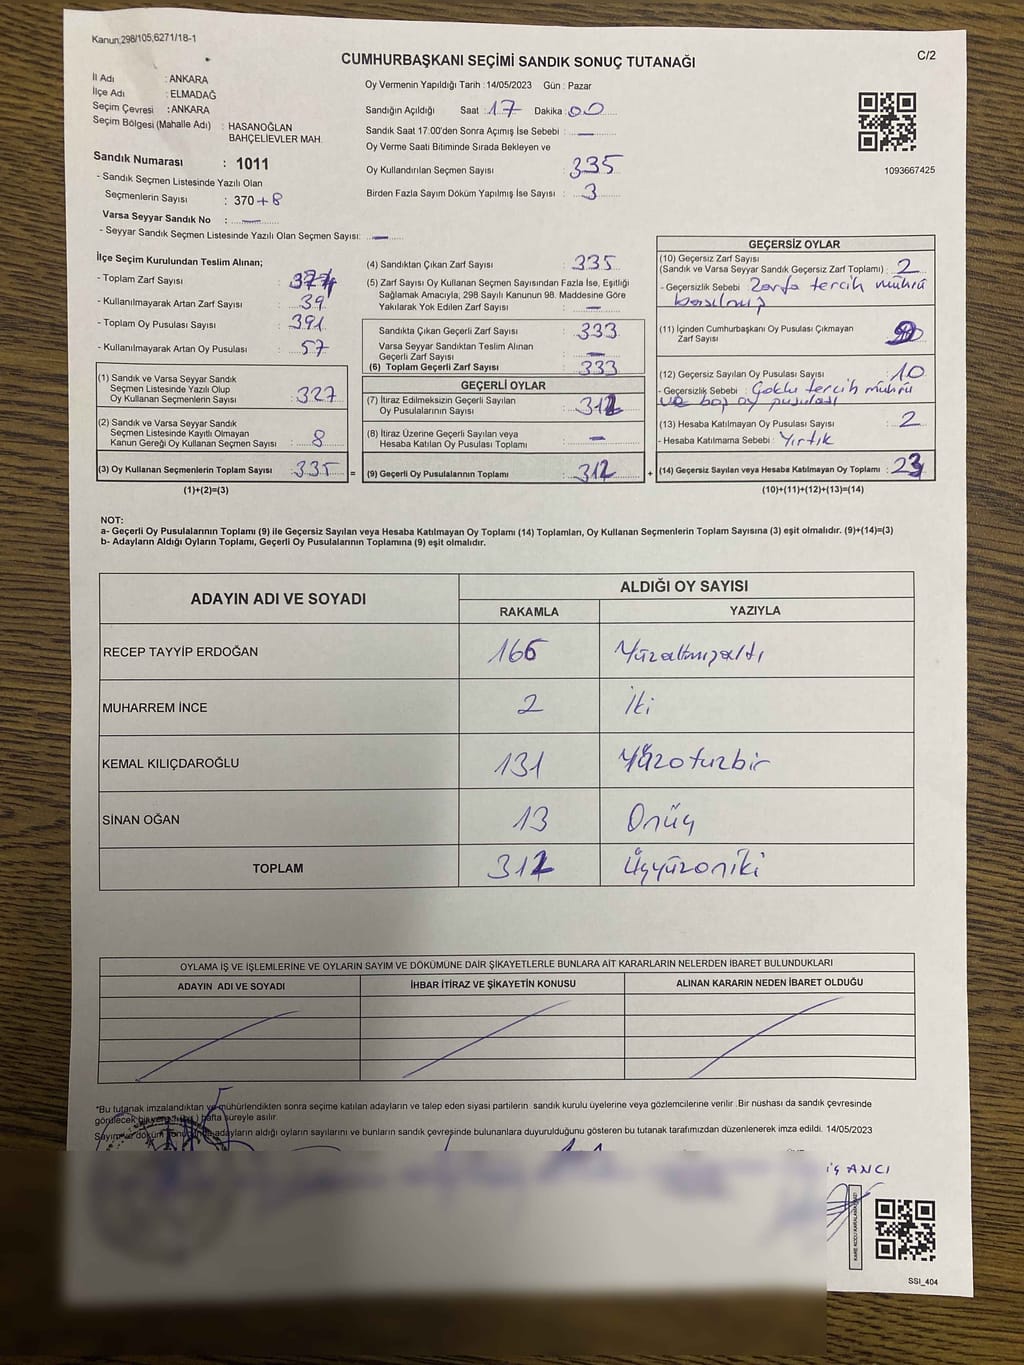 Kanun;298/105,6271/18-1
C/2
CUMHURBAŞKANI SEÇİMİ SANDIK SONUÇ TUTANAĞI
İl Adı : ANKARA
İlçe Adı : ELMADAĞ
Seçim Çevresi : ANKARA
Seçim Bölgesi (Mahalle Adı) : HASANOĞLAN
BAHÇELİEVLER MAH.
Sandık Numarası : 1011
- Sandık Seçmen Listesinde Yazılı Olan
Seçmenlerin Sayısı : 370 + 8
Varsa Seyyar Sandık No : —
- Seyyar Sandık Seçmen Listesinde Yazılı Olan Seçmen Sayısı: —
Oy Vermenin Yapıldığı Tarih : 14/05/2023 Gün : Pazar
Sandığın Açıldığı Saat : 17 Dakika : 00
Sandık Saat 17.00'den Sonra Açımış İse Sebebi : —
Oy Verme Saati Bitiminde Sırada Bekleyen ve
Oy Kullandırılan Seçmen Sayısı : 335
Birden Fazla Sayım Döküm Yapılmış İse Sayısı : 3
1093667425
İlçe Seçim Kurulundan Teslim Alınan;
- Toplam Zarf Sayısı :
- Kullanılmayarak Artan Zarf Sayısı : 39
- Toplam Oy Pusulası Sayısı : 391
- Kullanılmayarak Artan Oy Pusulası : 57
(1) Sandık ve Varsa Seyyar Sandık
Seçmen Listesinde Yazılı Olup
Oy Kullanan Seçmenlerin Sayısı : 327
(2) Sandık ve Varsa Seyyar Sandık
Seçmen Listesinde Kayıtlı Olmayan
Kanun Gereği Oy Kullanan Seçmen Sayısı : 8
(3) Oy Kullanan Seçmenlerin Toplam Sayısı : 335 =
(1)+(2)=(3)
(4) Sandıktan Çıkan Zarf Sayısı : 335
(5) Zarf Sayısı Oy Kullanan Seçmen Sayısından Fazla İse, Eşitliği
Sağlamak Amacıyla, 298 Sayılı Kanunun 98. Maddesine Göre
Yakılarak Yok Edilen Zarf Sayısı : —
Sandıkta Çıkan Geçerli Zarf Sayısı : 333
Varsa Seyyar Sandıktan Teslim Alınan
Geçerli Zarf Sayısı : —
(6) Toplam Geçerli Zarf Sayısı : 333
GEÇERLİ OYLAR
(7) İtiraz Edilmeksizin Geçerli Sayılan
Oy Pusulalarının Sayısı : 312
(8) İtiraz Üzerine Geçerli Sayılan veya
Hesaba Katılan Oy Pusulası Toplamı : —
(9) Geçerli Oy Pusulalarının Toplamı : 312 +
GEÇERSİZ OYLAR
(10) Geçersiz Zarf Sayısı
(Sandık ve Varsa Seyyar Sandık Geçersiz Zarf Toplamı) : 2
- Geçersizlik Sebebi : Zarfa tercih mührü
basılmış
(11) İçinden Cumhurbaşkanı Oy Pusulası Çıkmayan
Zarf Sayısı :
(12) Geçersiz Sayılan Oy Pusulası Sayısı : 10
- Geçersizlik Sebebi : Çoklu tercih mührü
ve boş oy pusulası
(13) Hesaba Katılmayan Oy Pusulası Sayısı : 2
- Hesaba Katılmama Sebebi : Yırtık
(14) Geçersiz Sayılan veya Hesaba Katılmayan Oy Toplamı : 23
(10)+(11)+(12)+(13)=(14)
NOT:
a- Geçerli Oy Pusulalarının Toplamı (9) ile Geçersiz Sayılan veya Hesaba Katılmayan Oy Toplamı (14) Toplamları, Oy Kullanan Seçmenlerin Toplam Sayısına (3) eşit olmalıdır. (9)+(14)=(3)
b- Adayların Aldığı Oyların Toplamı, Geçerli Oy Pusulalarının Toplamına (9) eşit olmalıdır.
ADAYIN ADI VE SOYADI ALDIĞI OY SAYISI
RAKAMLA YAZIYLA
RECEP TAYYİP ERDOĞAN 166 Yüzaltmışaltı
MUHARREM İNCE 2 İki
KEMAL KILIÇDAROĞLU 131 Yüzotuzbir
SİNAN OĞAN 13 Onüç
TOPLAM 312 Üçyüzoniki
OYLAMA İŞ VE İŞLEMLERİNE VE OYLARIN SAYIM VE DÖKÜMÜNE DAİR ŞİKAYETLERLE BUNLARA AİT KARARLARIN NELERDEN İBARET BULUNDUKLARI
ADAYIN ADI VE SOYADI İHBAR İTİRAZ VE ŞİKAYETİN KONUSU ALINAN KARARIN NEDEN İBARET OLDUĞU
*Bu tutanak imzalandıktan ve mühürlendikten sonra seçime katılan adayların ve talep eden siyasi partilerin sandık kurulu üyelerine veya gözlemcilerine verilir. Bir nüshası da sandık çevresinde
görülecek bir yere hafta süreyle asılır.
Sayım ve döküm adayların aldığı oyların sayılarını ve bunların sandık çevresinde bulunanlara duyurulduğunu gösteren bu tutanak tarafımızdan düzenlenerek imza edildi. 14/05/2023
SSI_404